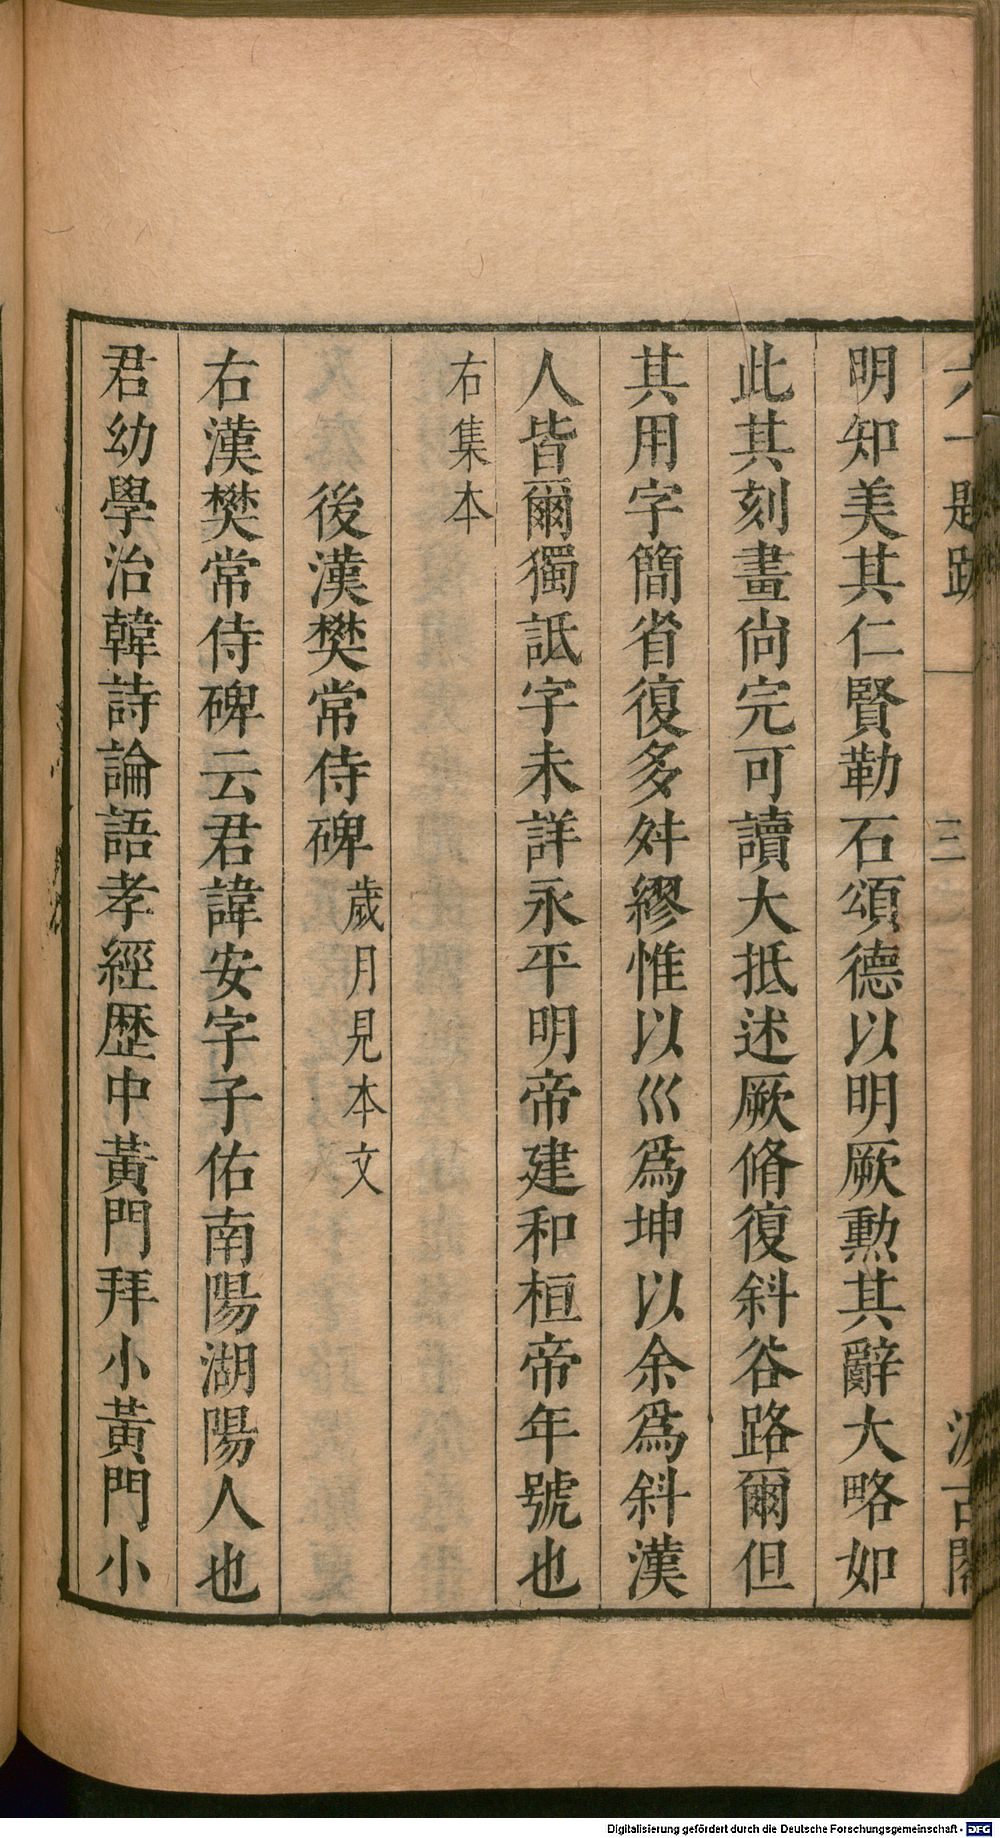 六一題跋 三 汲古閣
明知美其仁賢勒石頌德以明厥勲其辭大略如
此其刻畫尙完可讀大抵述厥脩復斜谷路爾但
其用字簡省復多舛繆惟以巛爲坤以余爲斜漢
人皆爾獨詆字未詳永平明帝建和桓帝年號也
右集本
後漢樊常侍碑歲月見本文
右漢樊常侍碑云君諱安字子佑南陽湖陽人也
君幼學治韓詩論語孝經歷中黃門拜小黃門小
Digitalisierung gefördert durch die Deutsche Forschungsgemeinschaft - DFG